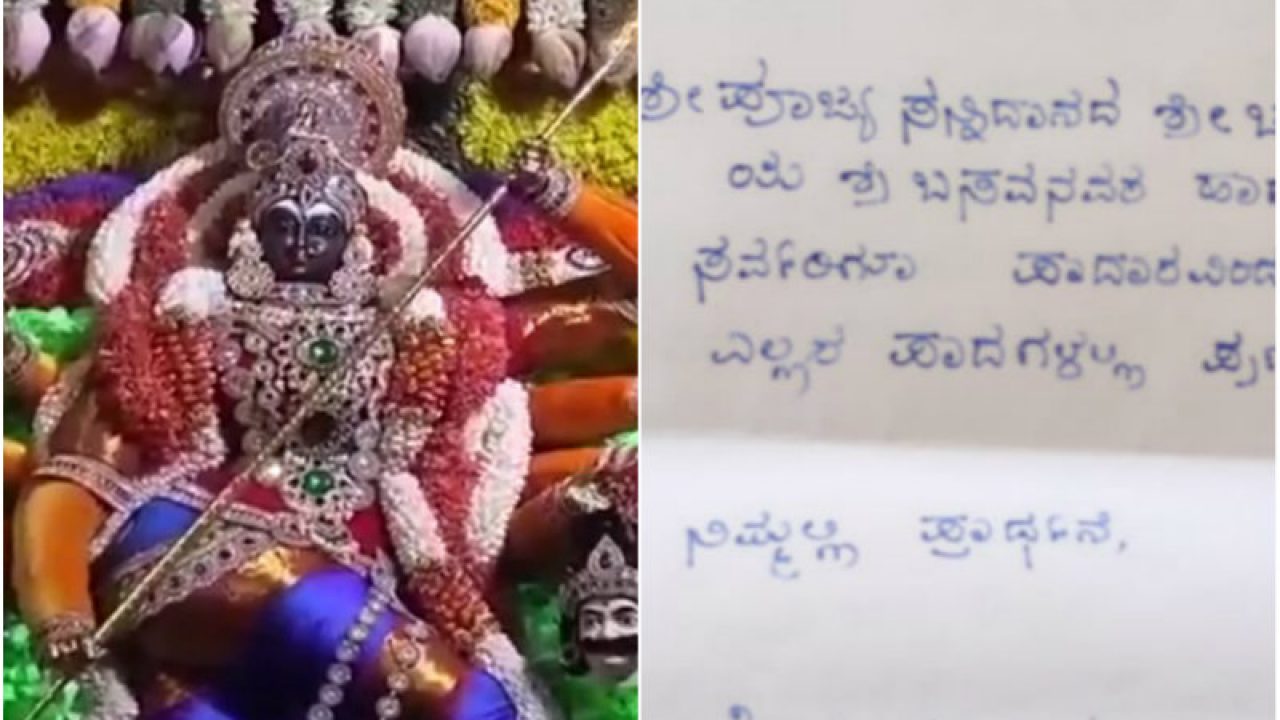 ಶ್ರೀ ಪೂಜ್ಯ ಸನ್ನಿದಾನದ ಶ್ರೀ
ಯ ಶ್ರೀ ಬಸವನವರ
ಸರ್ವರಿಗೂ ಪಾದಾರವಿಂದ
ಎಲ್ಲರ ಪಾದಗಳಲ್ಲಿ
ನಿಮ್ಮಲ್ಲಿ ಪ್ರಾರ್ಥನೆ,